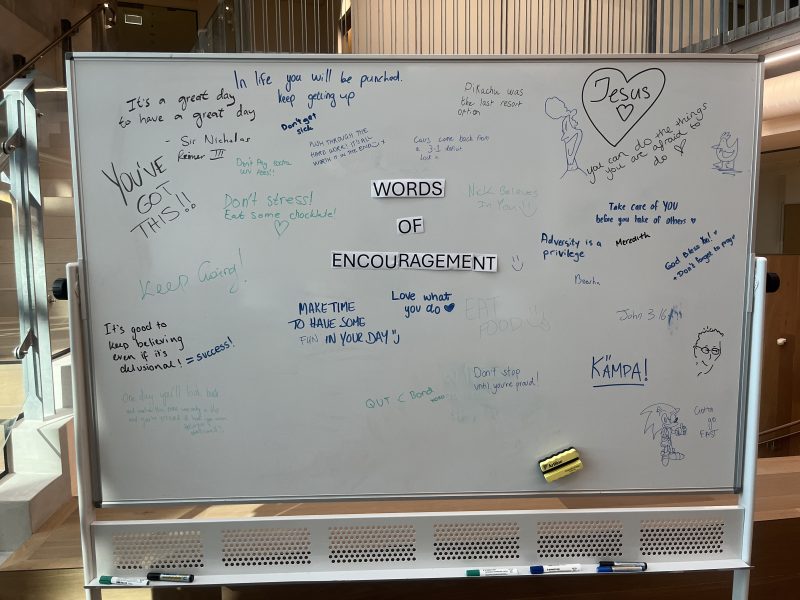 In life you will be punched.
keep getting up
It's a great day
to have a great day
- Sir Nicholas
Reiner III
Don't get
sick
PUSH THROUGH THE
HARD WORK! IT'LL ALL
WORTH IT IN THE END
Pikachu was
the last resort
option
Cavs came back from
a 3-1 deficit
Jesus
you can do the things
you are afraid to
do
YOU'VE
GOT
THIS!!
Don't stress!
Eat some chocklate!
WORDS
OF
ENCOURAGEMENT
Nick Believes
In You!
Take care of YOU
before you take of others
Adversity is a
privilege
Meredith
God Bless You!
+ Don't forget to pray
Keep Going!
MAKE TIME
TO HAVE SOME
FUN IN YOUR DAY
Love what
you do
EAT
FOOD
John 3:16
It's good to
keep believing
even if it's
delusional! = success!
KÄMPA!
Don't stop
until you're proud!
One day you'll look back
QUT < Bond
Gotta
go
FAST